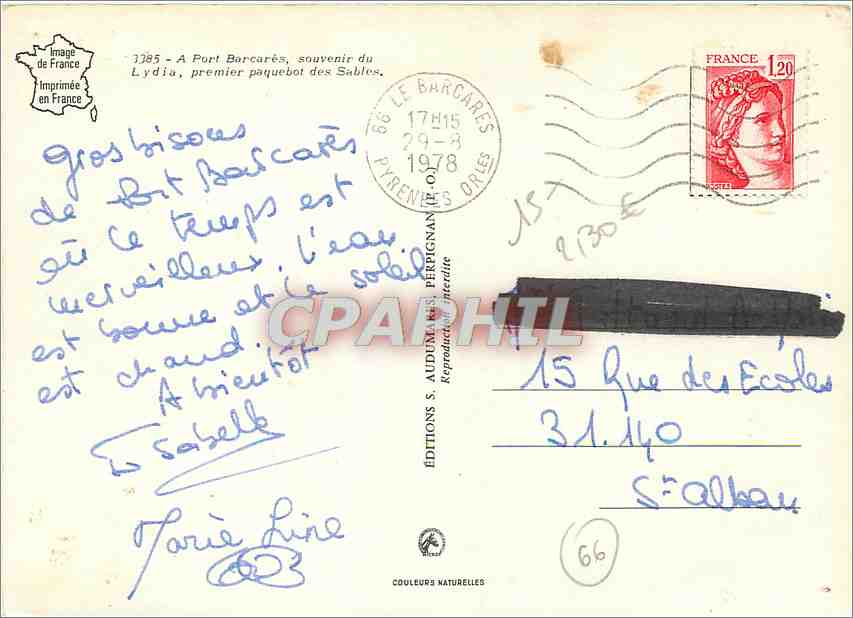 Image
de France
Imprimée
en France
3385 - A Port Barcarès, souvenir du
Lydia, premier paquebot des Sables.
66 LE BARCARES
17H15
29-8
1978
PYRENEES ORles
FRANCE 1,20
POSTES
gros bisous
de Port Barcarès
où le temps est
merveilleux. l'eau
est bonne et le soleil
est chaud.
A bientôt
Isabelle
Marie Line
15-
2,30 €
15 Rue des Ecoles
31.140
St alban
66
EDITIONS S. AUDUMARES, PERPIGNAN (P.-O.)
Reproduction interdite
CPARPHIL
COULEURS NATURELLES